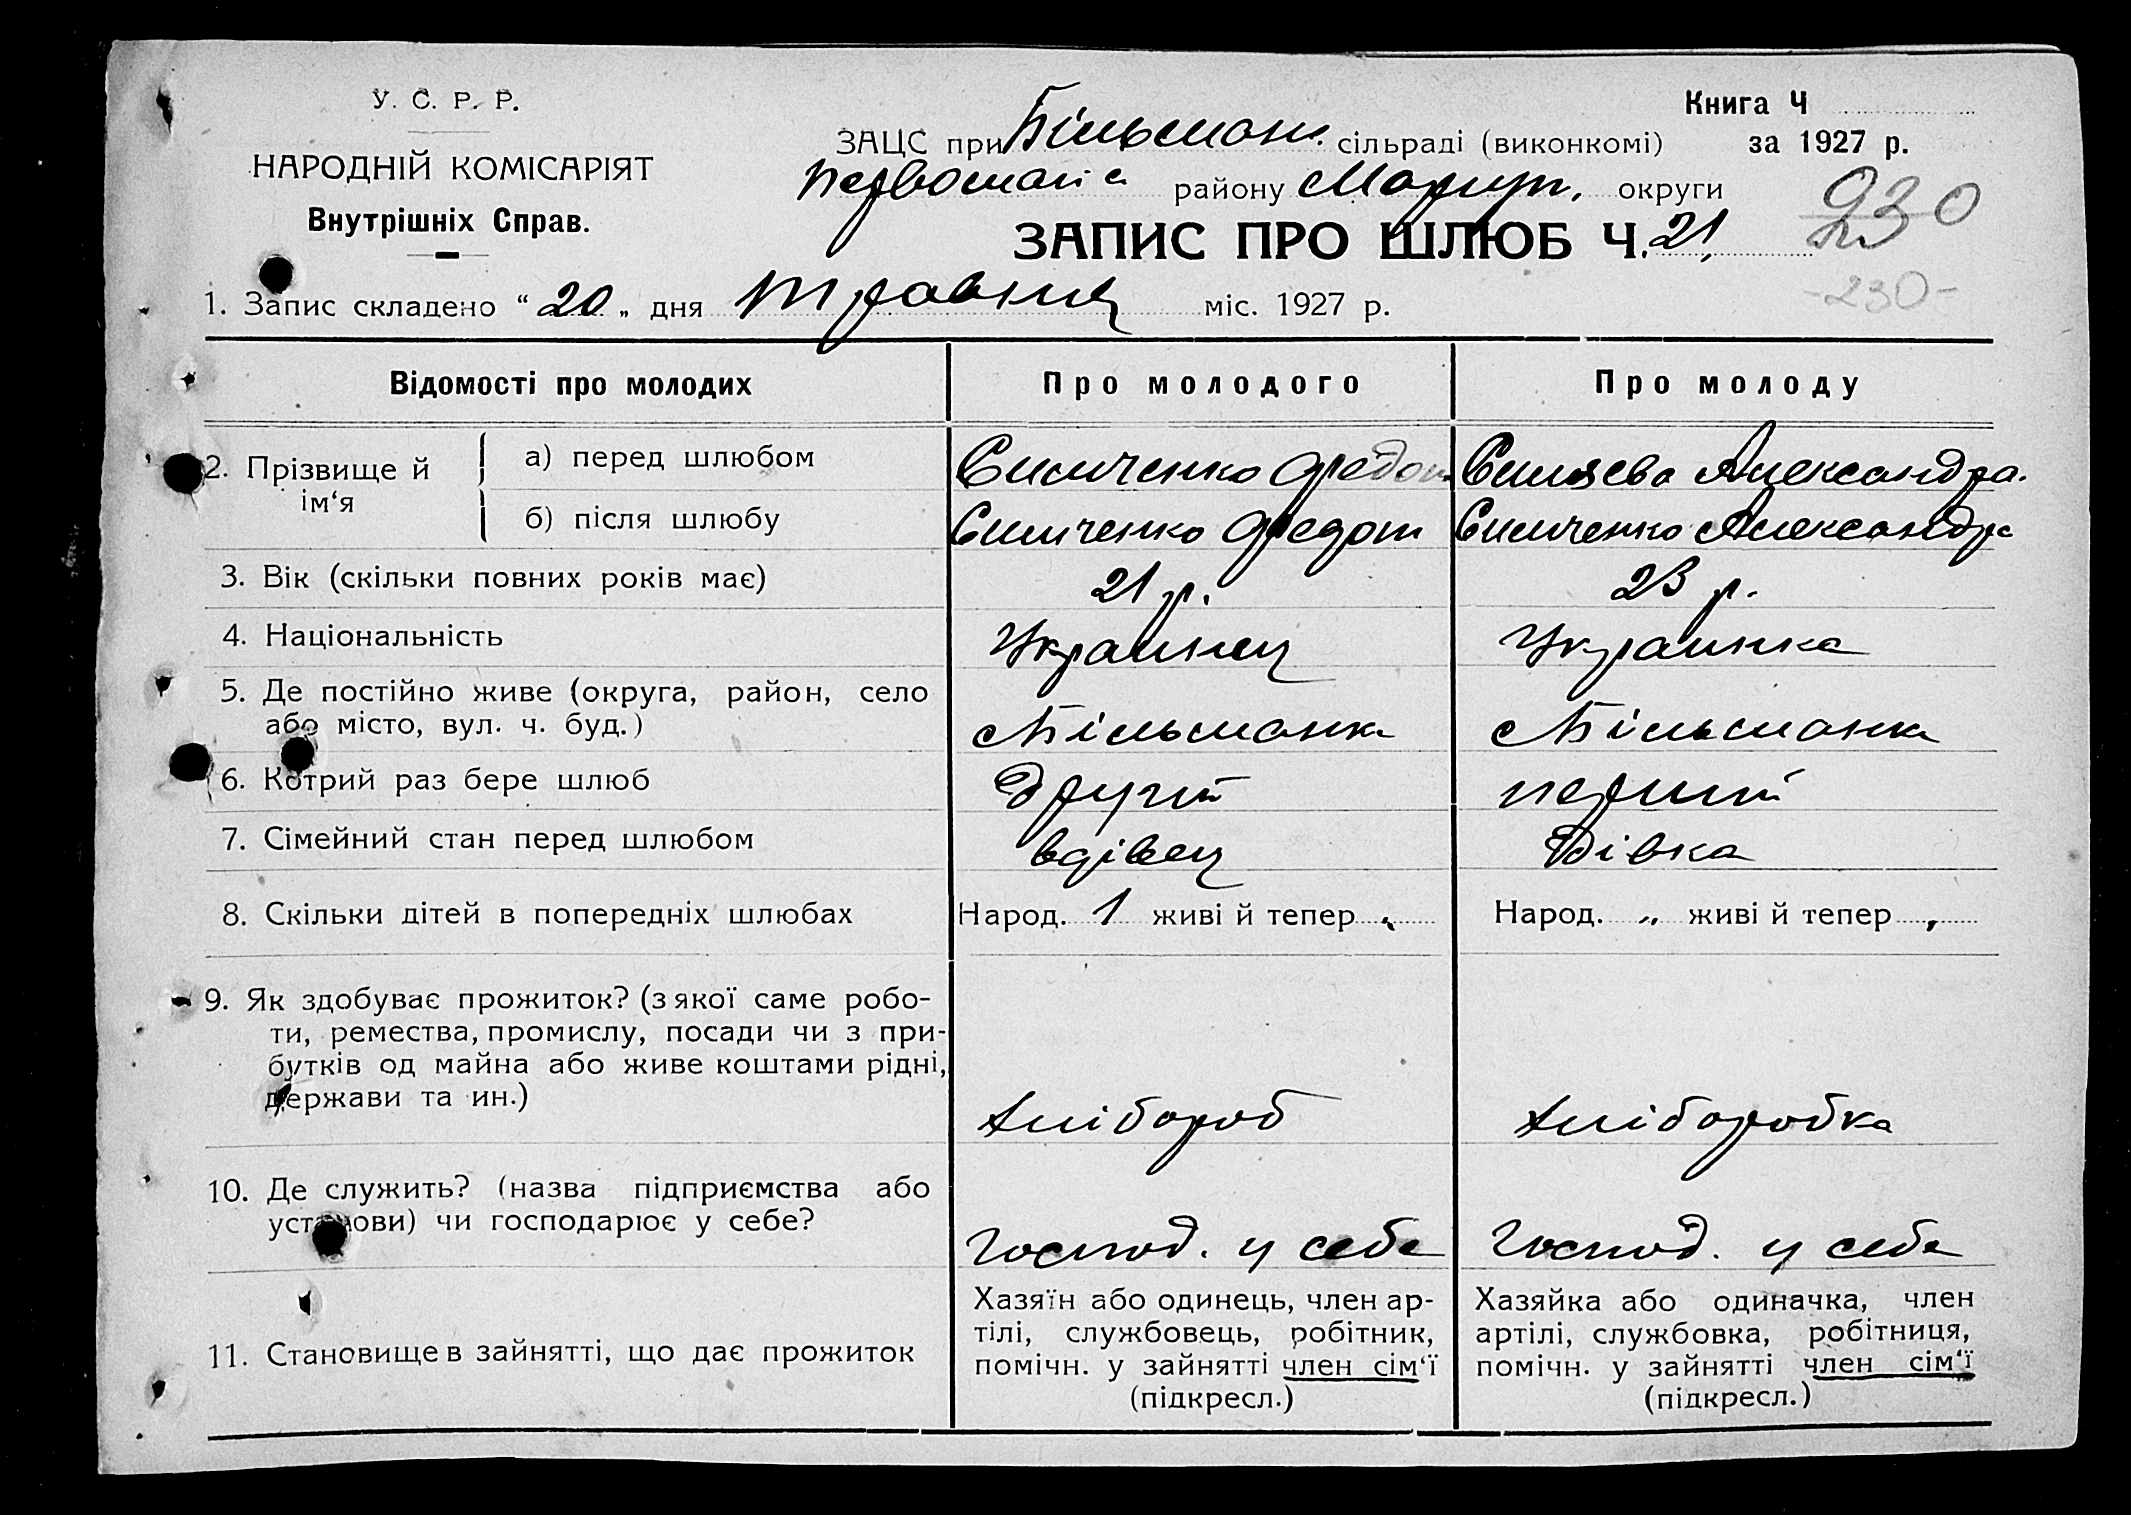 У. С. Р. Р.
НАРОДНІЙ КОМІСАРІЯТ
Внутрішніх Справ.
Книга Ч
ЗАЦС при Більман. сільраді (виконкомі) за 1927 р.
Первомайс району Маріуп. округи
930
ЗАПИС ПРО ШЛЮБ Ч. 21
-230-
1. Запис складено “ 20 „ дня травня міс. 1927 р.
Відомості про молодих Про молодого Про молоду
2. Прізвище й ім‘я
а) перед шлюбом Симченко Федот Александра.
б) після шлюбу Симченко Федот Симченко Александра
3. Вік (скільки повних років має) 21 р. 23 р.
4. Національність Украинец Украинка
5. Де постійно живе (округа, район, село
або місто, вул. ч. буд.) с Більманка с Більманка
6. Котрий раз бере шлюб Другий перший
7. Сімейний стан перед шлюбом вдівец Дівка
8. Скільки дітей в попередніх шлюбах Народ. 1 живі й тепер Народ. „ живі й тепер
9. Як здобуває прожиток? (з якої саме робо-
ти, ремества, промислу, посади чи з при-
бутків од майна або живе коштами рідні,
держави та ин.) Хлібороб Хліборобка
10. Де служить? (назва підприємства або
установи) чи господарює у себе? Господ. у себе Господ. у себе
11. Становище в зайнятті, що дає прожиток
Хазяїн або одинець, член ар-
тілі, службовець, робітник,
помічн. у зайнятті член сім‘ї
(підкресл.)
Хазяйка або одиначка, член
артілі, службовка, робітниця,
помічн. у зайнятті член сім‘ї
(підкресл.)